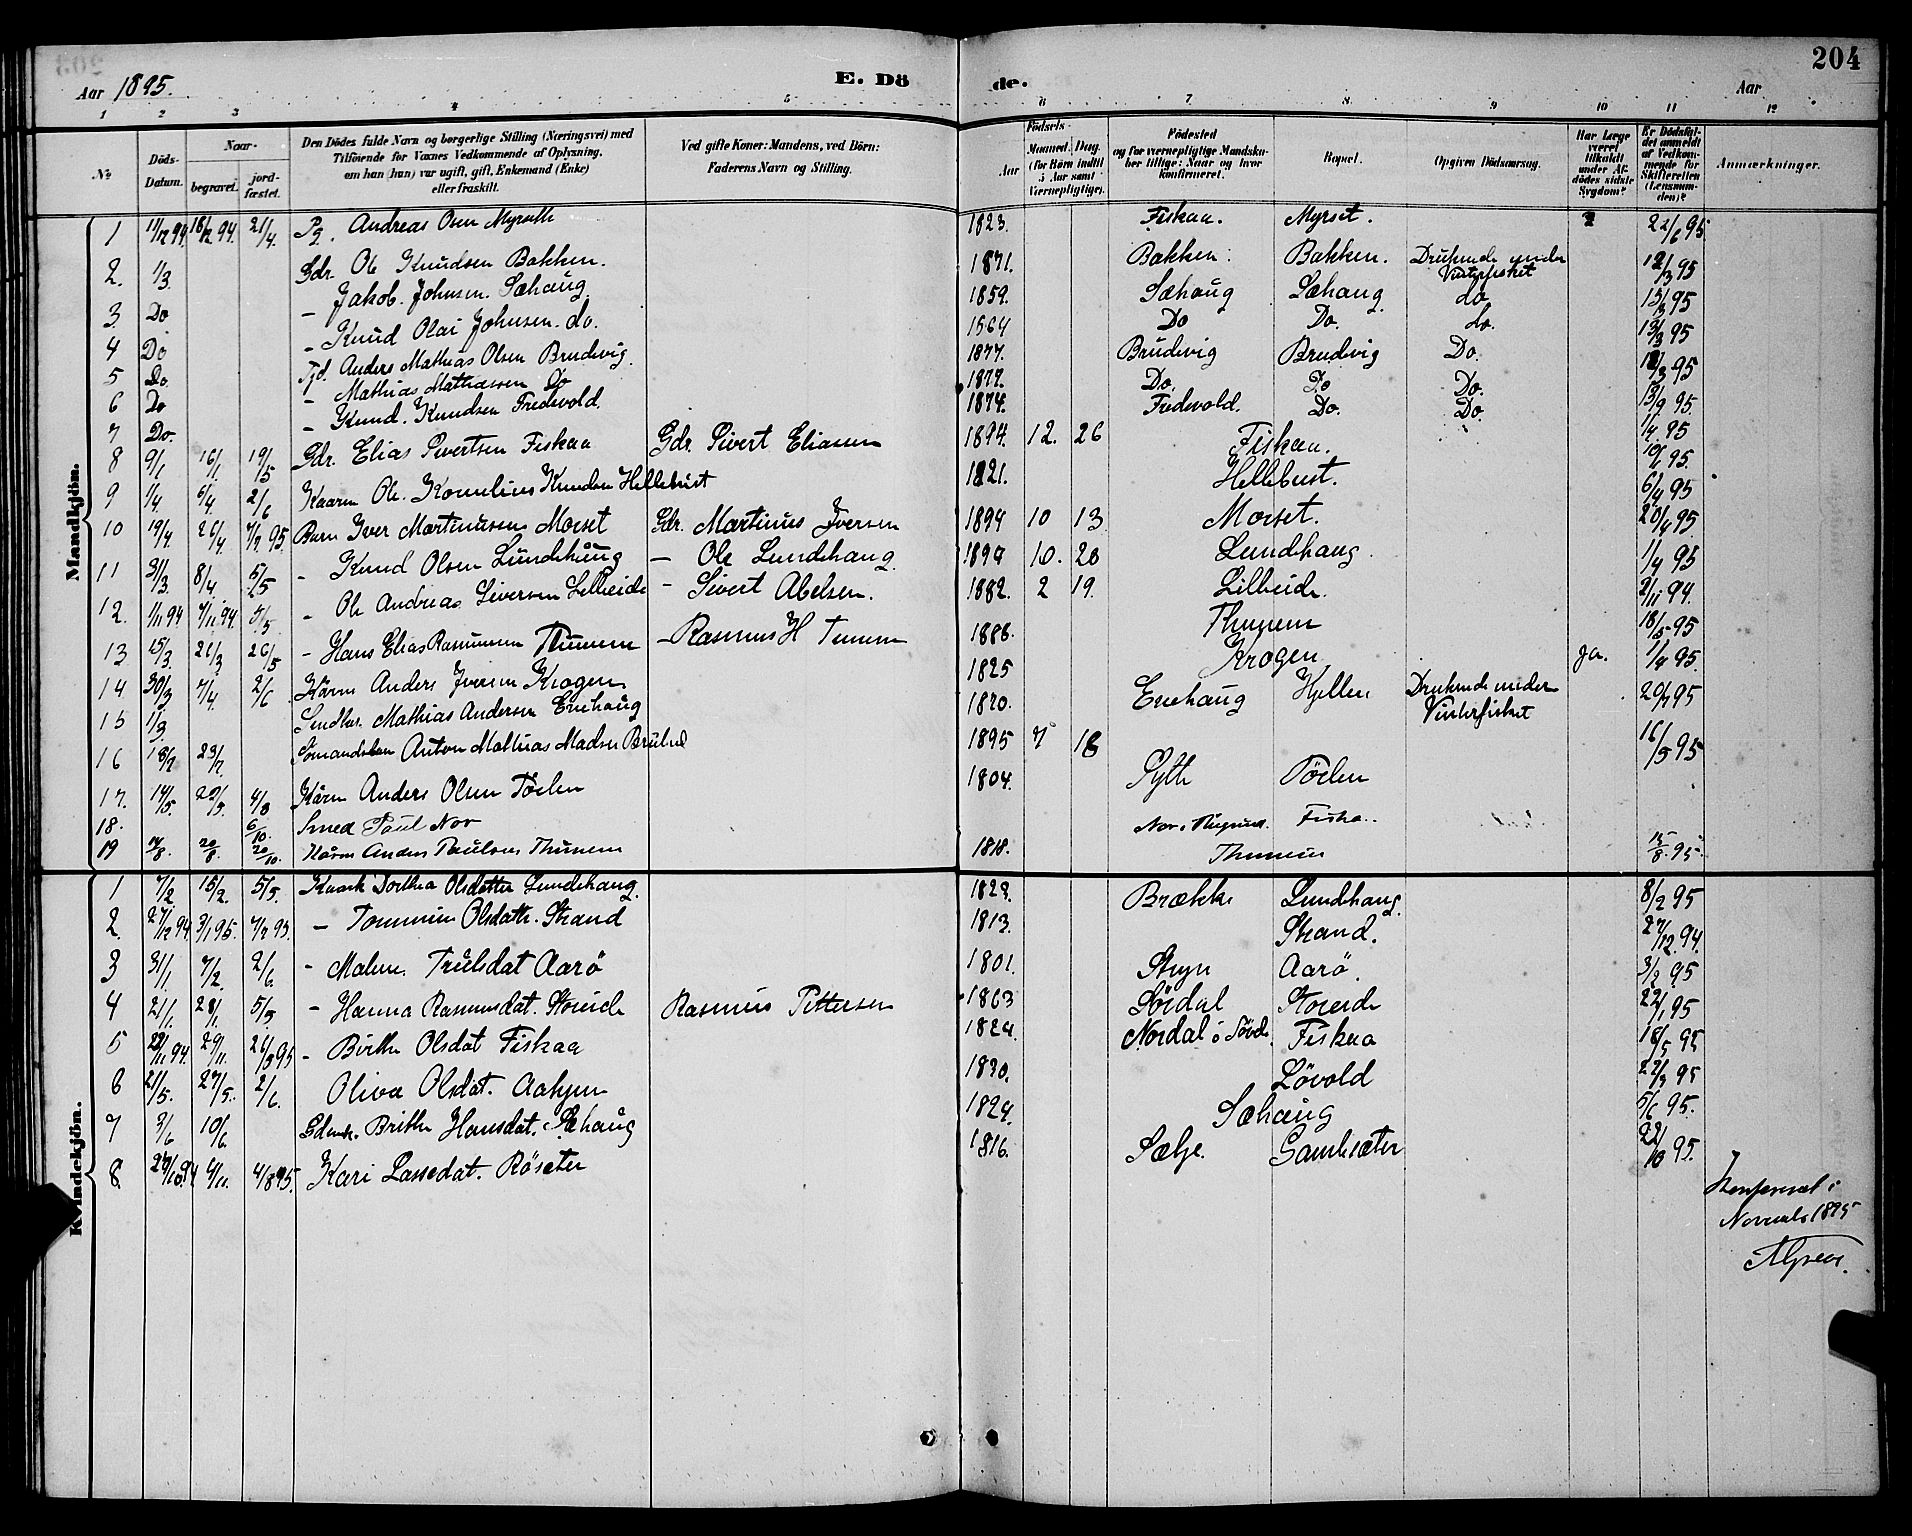 204
Aar 1895. E. Dö de. Aar
1 2 3 4 5 6 7 8 9 10 11 12
No Döds-Datum. Naar- begravet. jord-fæstet. Den Dödes fulde Navn og borgerlige Stilling (Næringsvei) med Tilföiende for Voxnes Vedkommende af Oplysning, om han (hun) var ugift, gift, Enkemand (Enke) eller fraskilt. Ved gifte Koner: Mandens, ved Börn: Faderens Navn og Stilling. Födsels- Aar Maaned. Dag. (for Börn indtil 5 Aar samt Vernepligtige). Födested og for vernepligtige Mandskaber tillige: Naar og hvor konfirmeret. Bopæl. Opgiven Dödsaarsag. Har Læge været tilkaldt under Afdödes sidste Sygdom? Er Dödsfaldet anmeldt af Vedkommende for Skifteretten (Lensmanden)? Anmærkninger.
Mandkjön.
1 11/12 94. 18/12 94. 21/4. Pg. Andreas Osen Myrseth 1823. Fiskaa. Myrset. 22/6 95
2. 1/3. Gdr. Ole Knudsen Bakken. 1871. Bakken. Bakken. Druknede under Vinterfisket 12/3 95
3. Do - Jakob Johnsen Sæhaug 1859. Sæhaug Sæhaug do 13/3 95
4 Do - Knud Olai Johnsen do. 1864 Do Do. do. 13/3 95
5 Do. Tjd. Anders Mathias Olsen Brudevig. 1877. Brudevig Brudevig Do. 12/3 95
6 Do - Mathias Mathiassen Do 1872. Do. Do Do. 13/9 95.
7 Do. - Knud Knudsen Fredevold. 1874. Fredevold. Do. Do. 1/4 95
8 9/1 16/1. 19/5 Gdr. Elias Sivertsen Fiskaa Gdr. Sivert Eliasen 1894. 12. 26 Fiskaa. 10/1 95.
9 1/4. 6/4. 2/6 Kaarm Ole Kornelius Knudsen Hellebust 1821. Hellebust. 6/4 95
10 19/4. 26/4. 7/7 95. Barn Iver Martinusen Morset Gdr. Martinus Iversen 1894 10 13 Morset. 20/4 95.
11 31/3. 8/4. 5/5 - Knud Olsen Lundehaug - Ole Lundehaug. 1894 10. 20 Lundehaug. 1/4 95
12. 1/11 94 7/11 94. 5/5. - Ole Andreas Siversen Lilleeide - Sivert Abelsen. 1882. 2 19. Lilleeide. 2/11 94.
13 15/3. 21/3 26/5 - Hans Elias Rasmussen Thunem - Rasmus H Tunem 1886. Thunem 18/5 95
14 30/3 7/4. 2/6 Kårm Anders Iversen Krogen 1825 Krogen ja. 1/4 95.
15 1/3. Smdkr. Mathias Andersen Enehaug 1820. Enehaug Hjellen Druknede under Vinterfisket 20/3 95
16 18/7 23/7. Sömandsbarn Anton Mathias Madsen Brulid 1895 7 18 16/5 95
17. 14/5. 20/5. 4/8 Kårm Anders Olsen Törlen 1804. Sylte Törlen
18. 6/10. Smed Paul Nor Nor i Fiska.
19 14/8. 20/8. 20/10. Kårm Anders Paulsen Thunem 1818. Thunem 15/8 95
Kvindekjön.
1 7/2 15/2. 5/5. Kaark Dorthea Olsdatter Lundehaug. 1823. Brække Lundehaug. 8/2 95
2. 27/12 94 3/1 95. 7/7 95. - Tommine Olsdatt. Strand 1813. Strand. 27/12. 94.
3 31/1. 7/2. 2/6. - Malene Trulsdat Aarö 1801. Stryn Aarö. 3/2 95
4 21/1. 28/1. 5/5. - Hanna Rasmusdat. Storeide Rasmus Pettersen 1863 Sördal Storeide 22/1 95
5 22/11 94. 29/11. 26/8 95 - Birthe Olsdat Fiskaa 1824. Nordal i Sövde Fiskaa 18/5 95
6 21/5. 27/5. 2/6. Oliva Olsdat. Aahjem 1830. Lövold 22/3 95
7 3/6 10/6. Gdenk. Brithe Hansdat. Sæhaug 1824. Sæhaug 5/6 95.
8. 27/10 94 4/11. 4/8 95. Kari Lassedat. Rösæter 1816. Sælje. Gamlesæter 22/10 95.
Konfereret i
Novemb 1895